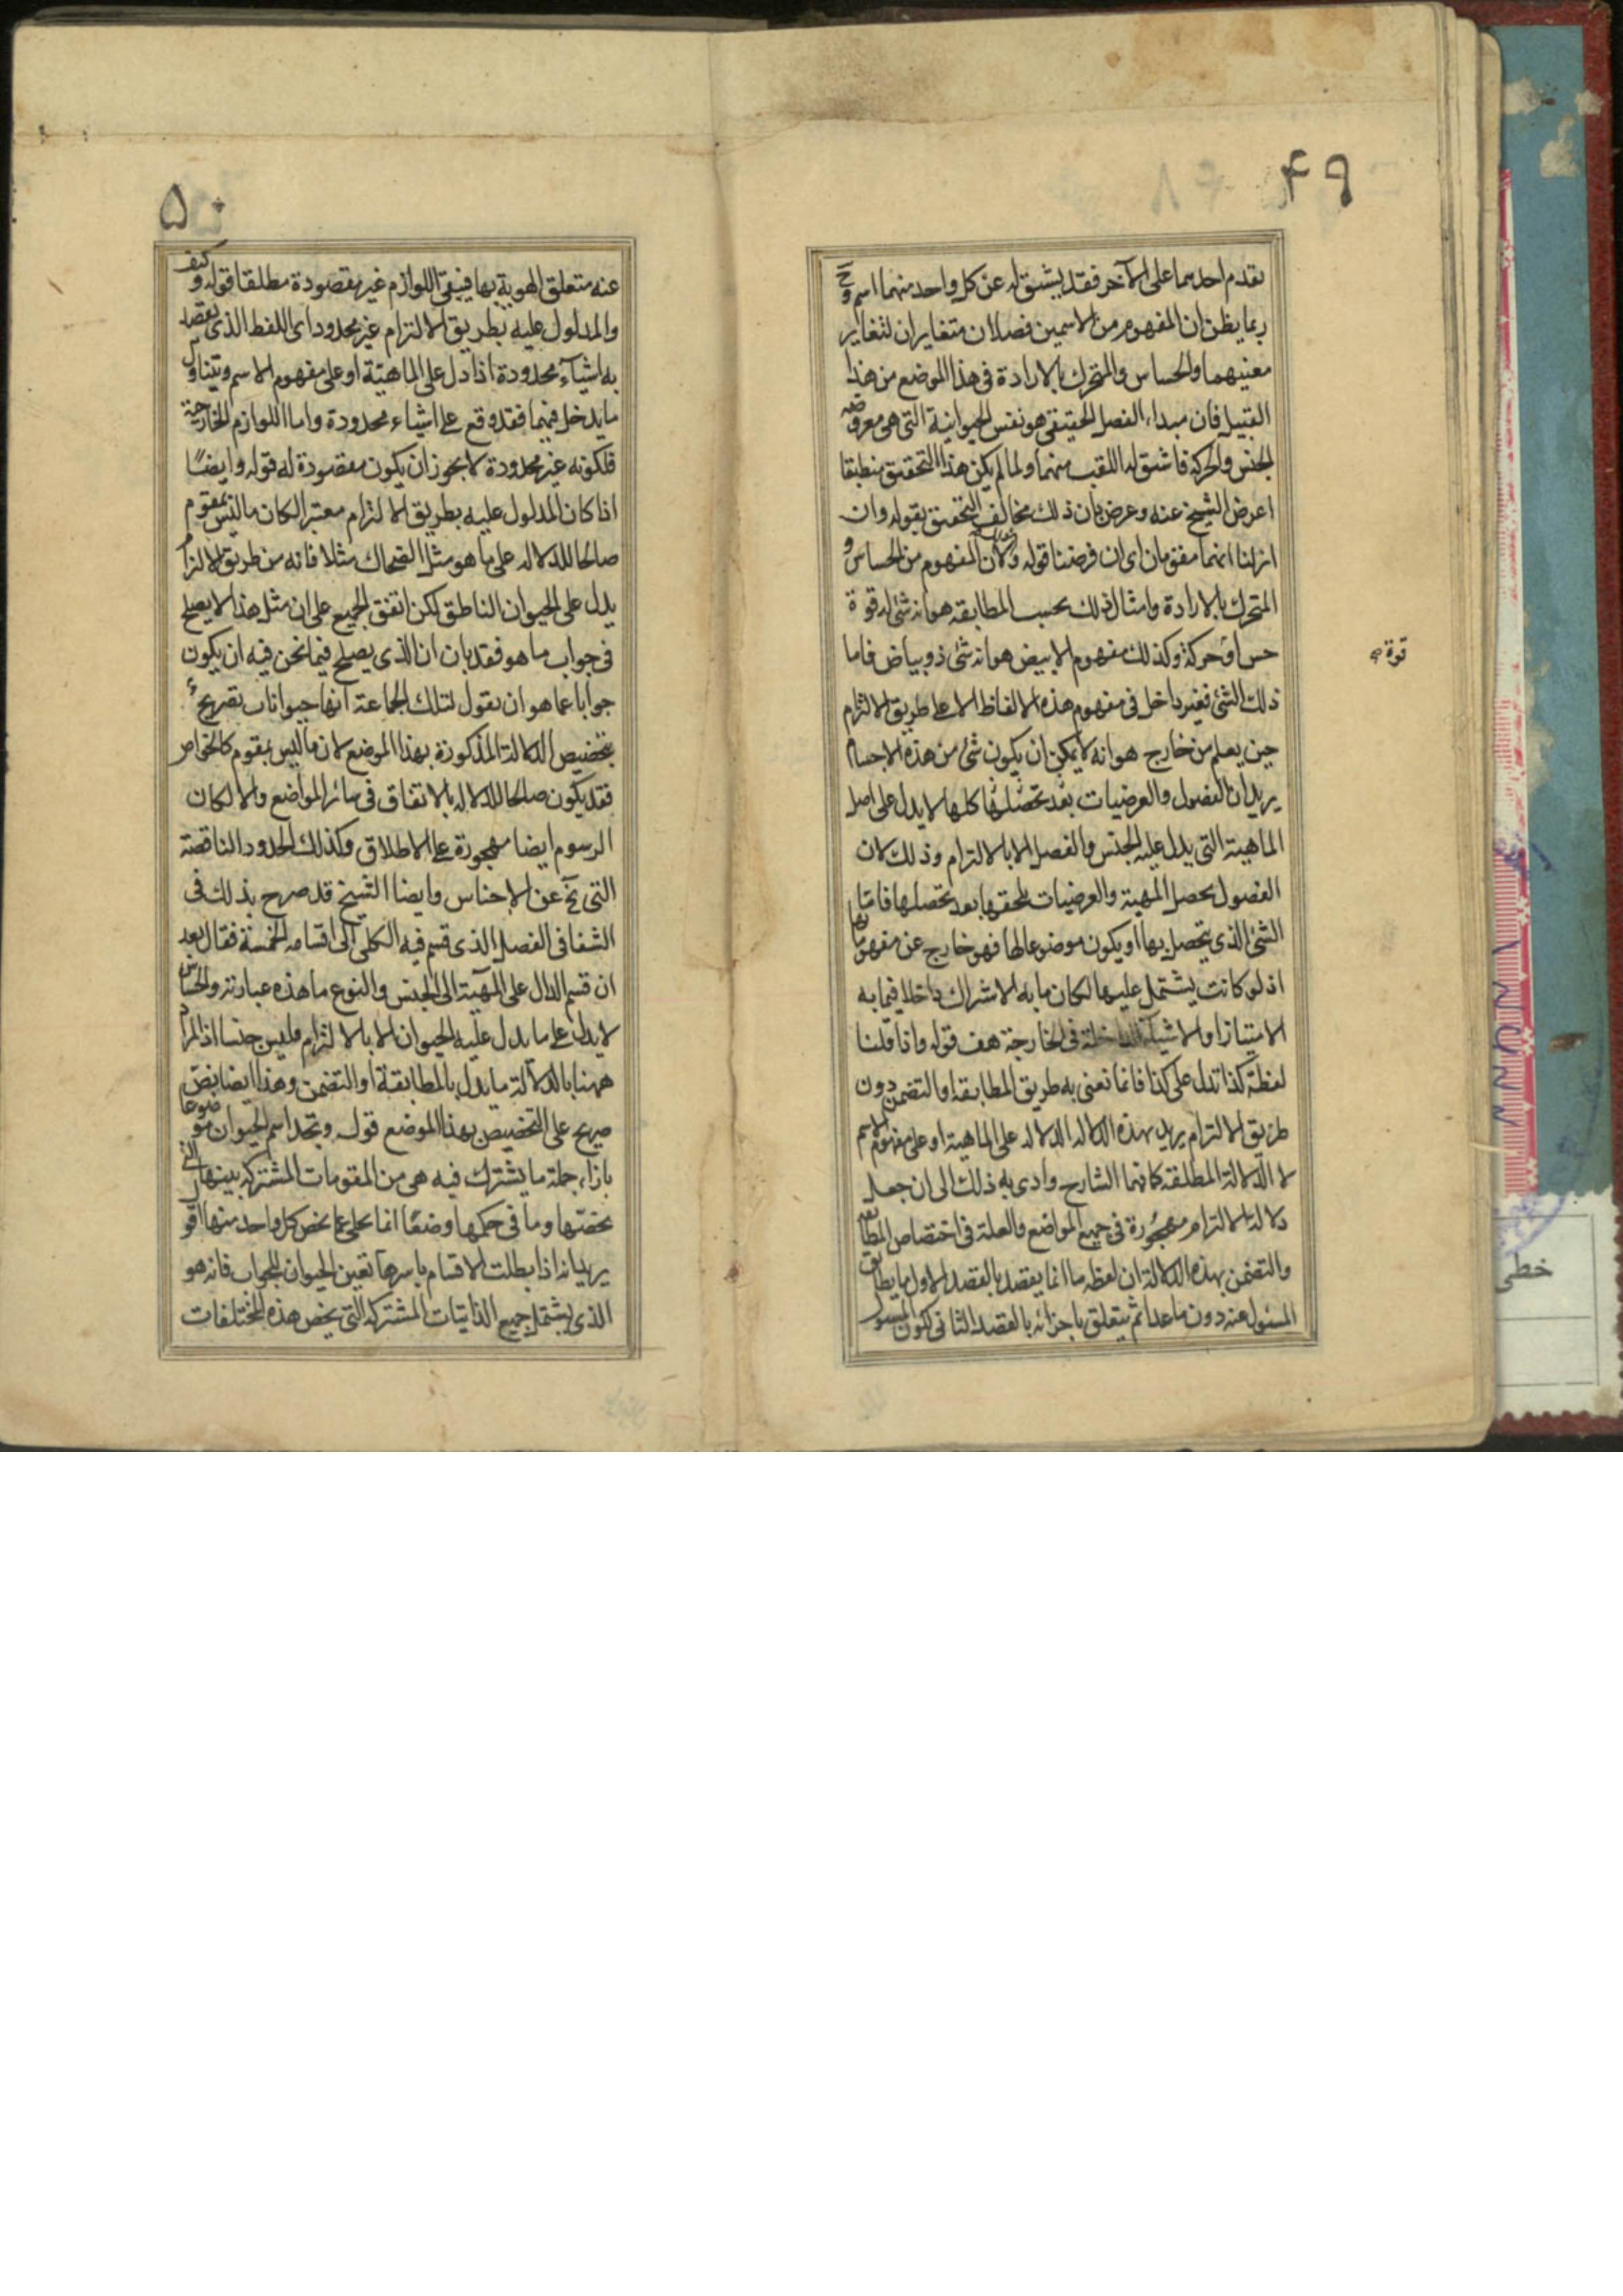 ۴۹
تقدم احدهما على الآخر فقد يشتق له عن كل واحد منهما اسم وح
ربما يظن ان المفهوم من الاسمين فصلان متغايران لتغاير
معنييهما والحساس والمتحرك بالارادة فى هذا الموضع من هذا
القبيل فان مبداء الفصل الحقيقى هو نفس الحيوانية التى هى معروضه
لحس والحركة فاشتق له اللقب منهما ولما لم يكن هذا التحقيق منطبقا
اعرض الشيخ عنه وعرض بان ذلك مخالف التحقيق بقوله وان
انزلنا انهما مقومان اى ان فرضنا قوله ولان المفهوم من الحساس و
المتحرك بالارادة وامثال ذلك بحسب المطابقه هو انه شئ له قوة
قوة صح
حس او حركة وكذلك مفهوم الابيض هو انه شئ ذو بياض فاما
ذلك الشئ فغير داخل فى مفهوم هذه الالفاظ الا على طريق الالتزام
حين يعلم من خارج هو انه لا يمكن ان يكون شئ من هذه الاجسام
يريد ان الفصول والعرضيات بعد تحصلها كلها لا يدل على اصل
الماهية التى يدل عليه الجنس والفصل الا بالالتزام وذلك لان
الفصول يحصل المهية والعرضيات تلحقها بعد تحصلها فاما
الشئ الذى يتحصل بها او يكون موضوعا لها فهو خارج عن مفهوماتها
اذ لو كانت يشتمل عليها لكان ما به الاشراك داخلا فيما به
الامتياز او الاشياء الداخلة فى الخارجة هف قوله واذا قلنا
لفظة كذا تدل على كذا فانما نعنى به طريق المطابقة او التضمن دون
طريق الالتزام يريد بهذه الدلاله الدلاله على الماهية او على مفهوم الاسم
لا الدلالة المطلقة كما فهما الشارح وادى به ذلك الى ان جعل
دلالة الالتزام مهجورة فى جميع المواضع والعلة فى اختصاص المطابقه
والتضمن بهذه الدلالة ان لفظه ما انما يقصد بالقصد الاول ما يطابق
المسئول عنه دون ما عداه ثم يتعلق باجزائه بالقصد الثانى لكون المسئول
۵۰
عنه متعلق الهوية بها فيبقى اللوازم غير مقصودة مطلقا قوله وكيف
والمدلول عليه بطريق الالتزام غير محدود اى اللفظ الذى يقصد
به اشياء محدودة اذا دل على الماهية او على مفهوم الاسم ويتناول
ما يدخل فيهما فقد وقع على اشياء محدودة واما اللوازم الخارجية
فلكونه غير محدودة لا يجوز ان يكون مقصودة له قوله وايضا
اذا كان المدلول عليه بطريق الالتزام معتبر الكان ما ليس بمقوم
صالحا للدلاله على ما هو مثل الضحاك مثلا فانه من طريق الالتزام
يدل على الحيوان الناطق لكن اتفق الجميع على ان مثل هذا لا يصلح
فى جواب ما هو فقد بان ان الذى يصلح فيما نحن فيه ان يكون
جوابا عما هو ان يقول لتلك الجماعة انها حيوانات تصريح
بتخصيص الدلالة المذكورة بهذا الموضع لان ما ليس بمقوم كالخواص
فقد يكون صالحا للدلاله بالاتفاق فى سائر المواضع والا لكان
الرسوم ايضا مهجورة على الاطلاق وكذلك الحدود الناقصة
التى يخ عن الاجناس وايضا الشيخ قد صرح بذلك فى
الشفا فى الفصل الذى قسم فيه الكلى الى اقسامه الخمسة فقال بعد
ان قسم الدال على المهية الى الجنس والنوع ما هذه عبارته والحساس
لا يدل على ما يدل عليه الحيوان الا بالالتزام فليس جنسا اذ المراد
ههنا بالدلالة ما يدل بالمطابقة او التضمن وهذا ايضا بنص
صريح على التخصيص بهذا الموضع قوله وتجد اسم الحيوان موضوعا
بازاء جملة ما يشترك فيه هى من المقومات المشتركه بينها التى
تخصها وما فى حكمها وضعا انما يخلى عما يخص كل واحد منها اقول
يريد انه اذا بطلت الاقسام باسرها تعين الحيوان للجواب فانه هو
الذى يشتمل جميع الذاتيات المشتركه التى يخص هذه المختلفات
خطى